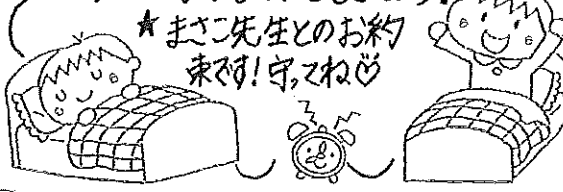 ★まさこ先生とのお約
束です！守ってね♡